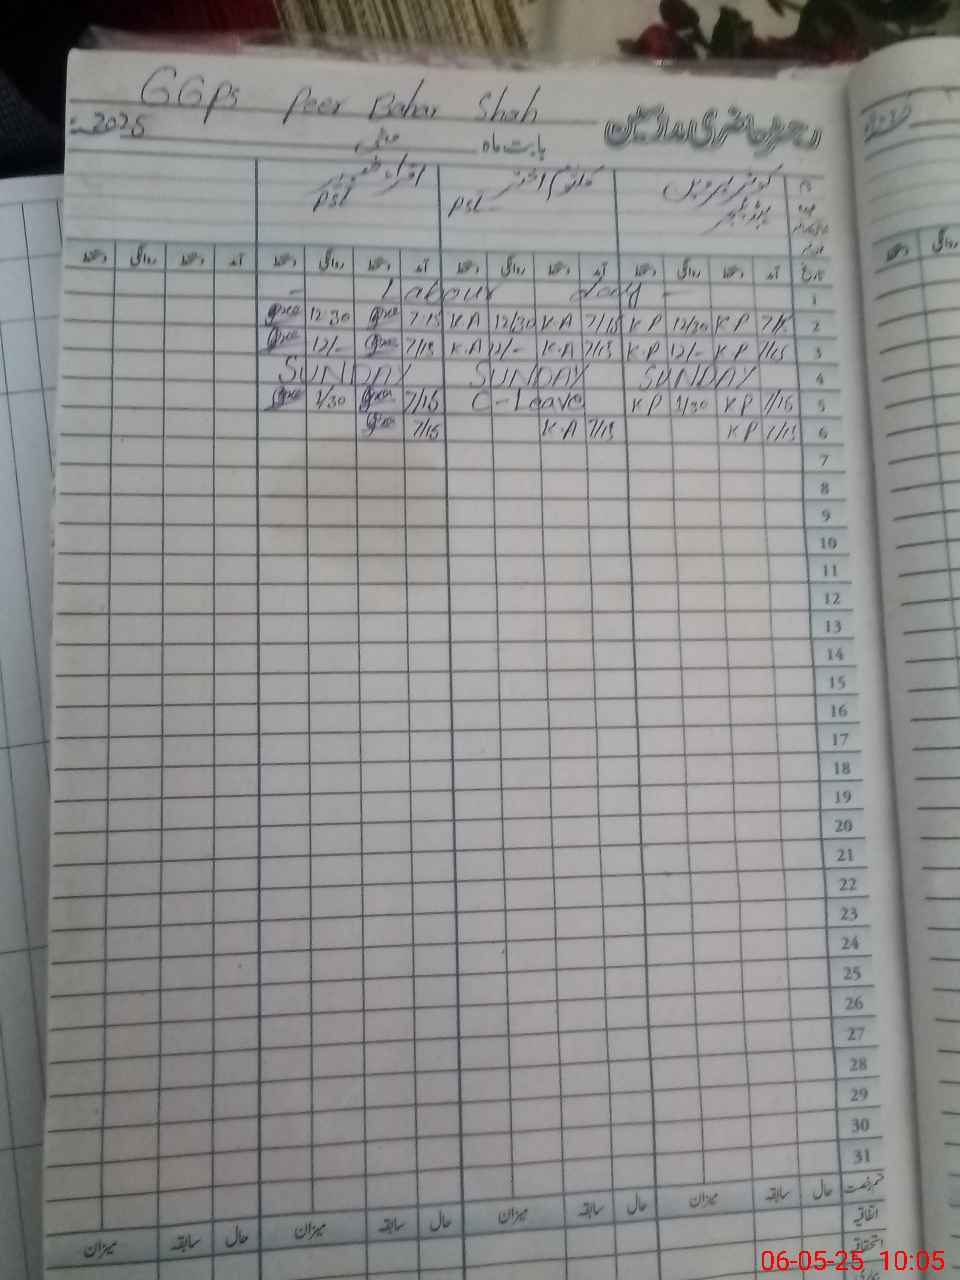 GGPS Peer Bahar Shah
رجسٹر حاضری ملازمین
بابت ماہ مئی 2025
کوثر پروین کلثوم اختر
PST PST
تاریخ آمد دستخط روانگی دستخط آمد دستخط روانگی دستخط آمد دستخط روانگی دستخط آمد دستخط روانگی دستخط
1 - Labour day -
2 12:30 7:15 K.A 12/30 K.A 7/15 K P 12/30 K P 7/15
3 12/- 7/15 K.A 12/- K.A 7/15 K P 12/- K P 7/15
4 SUNDAY SUNDAY SUNDAY
5 1/30 7/15 C-Leave K P 1/30 K P 7/15
6 7/15 K.A 7/15 K P 7/15
7
8
9
10
11
12
13
14
15
16
17
18
19
20
21
22
23
24
25
26
27
28
29
30
31
قسم رخصت حال سابقہ میزان حال سابقہ میزان حال سابقہ میزان حال سابقہ میزان
اتفاقیہ
استحقاقیہ
06-05-25 10:05